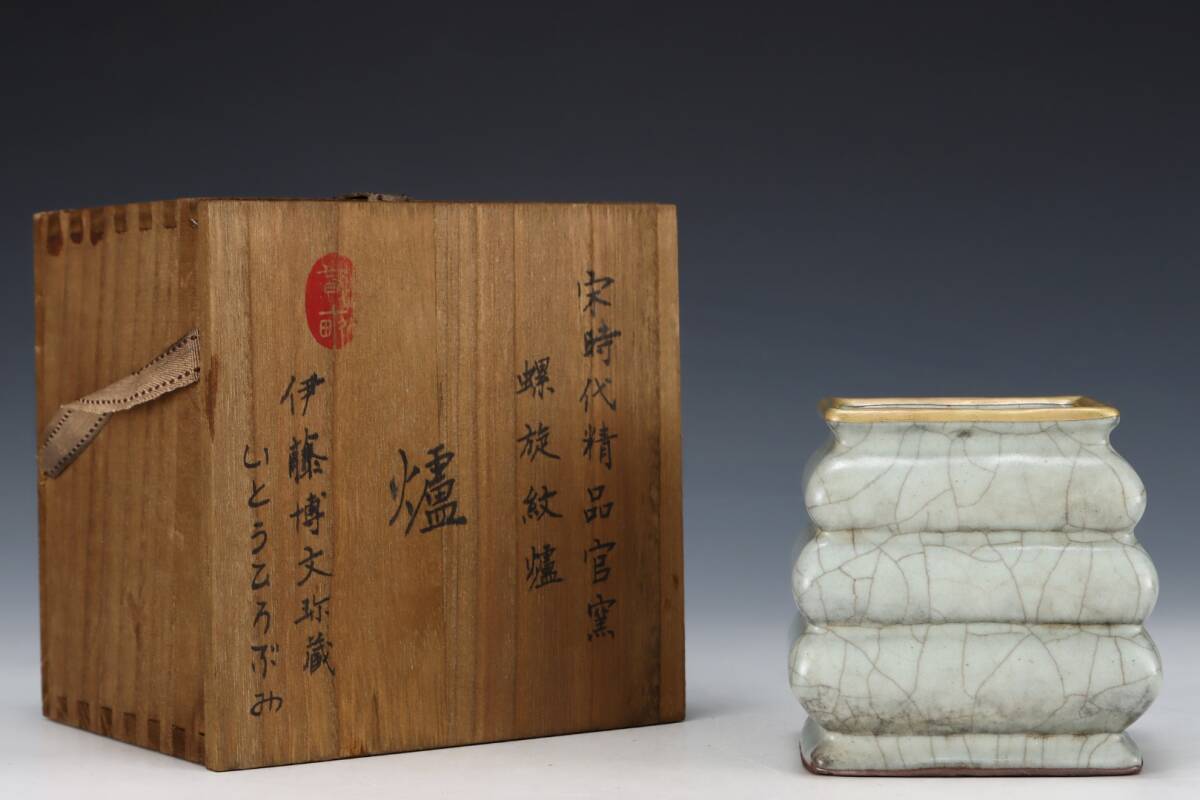 宋時代精品官窯
螺旋紋爐
爐
伊藤博文珎蔵
いとうひろぶみ